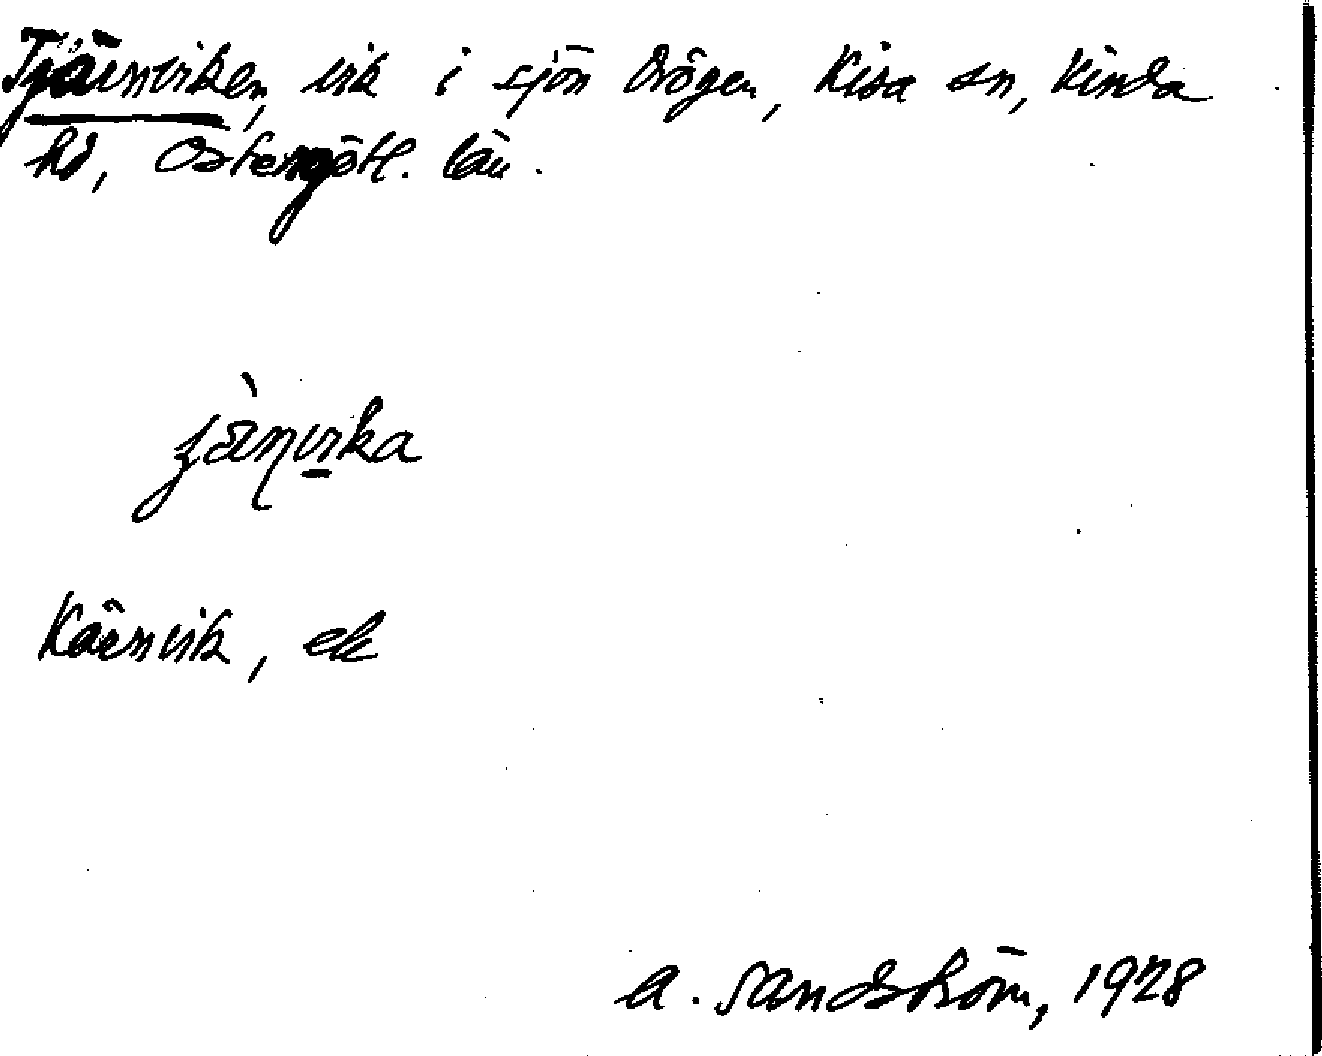 Tjärnviken, vik i sjön Drögen, Kisa sn, Kinda
hd, Östergötl. län.
Kärnvik, ek
A. Sandström, 1928